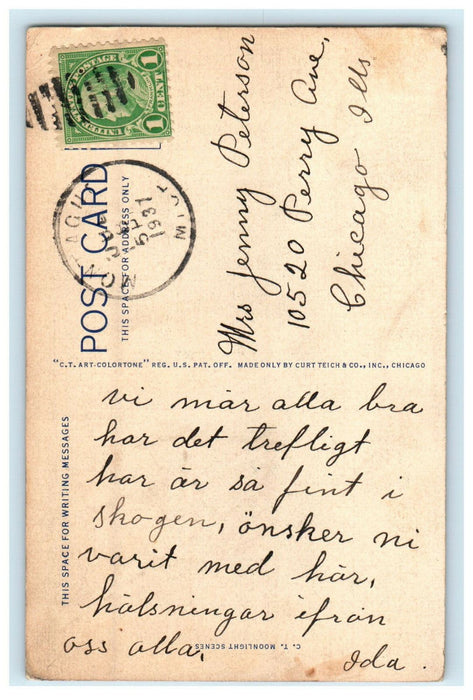 UNITED STATES POSTAGE
1 CENT 1
1931
MICH
POST CARD
THIS SPACE FOR ADDRESS ONLY
Mrs Jenny Peterson
10520 Perry Ave,
Chicago Ills
"C.T. ART-COLORTONE" REG. U.S. PAT. OFF. MADE ONLY BY CURT TEICH & CO., INC., CHICAGO
THIS SPACE FOR WRITING MESSAGES
vi mår alla bra
har det trefligt
här är så fint i
skogen, önsker ni
varit med här,
hälsningar ifrån
oss alla,
Ida.
C. T. MOONLIGHT SCENES